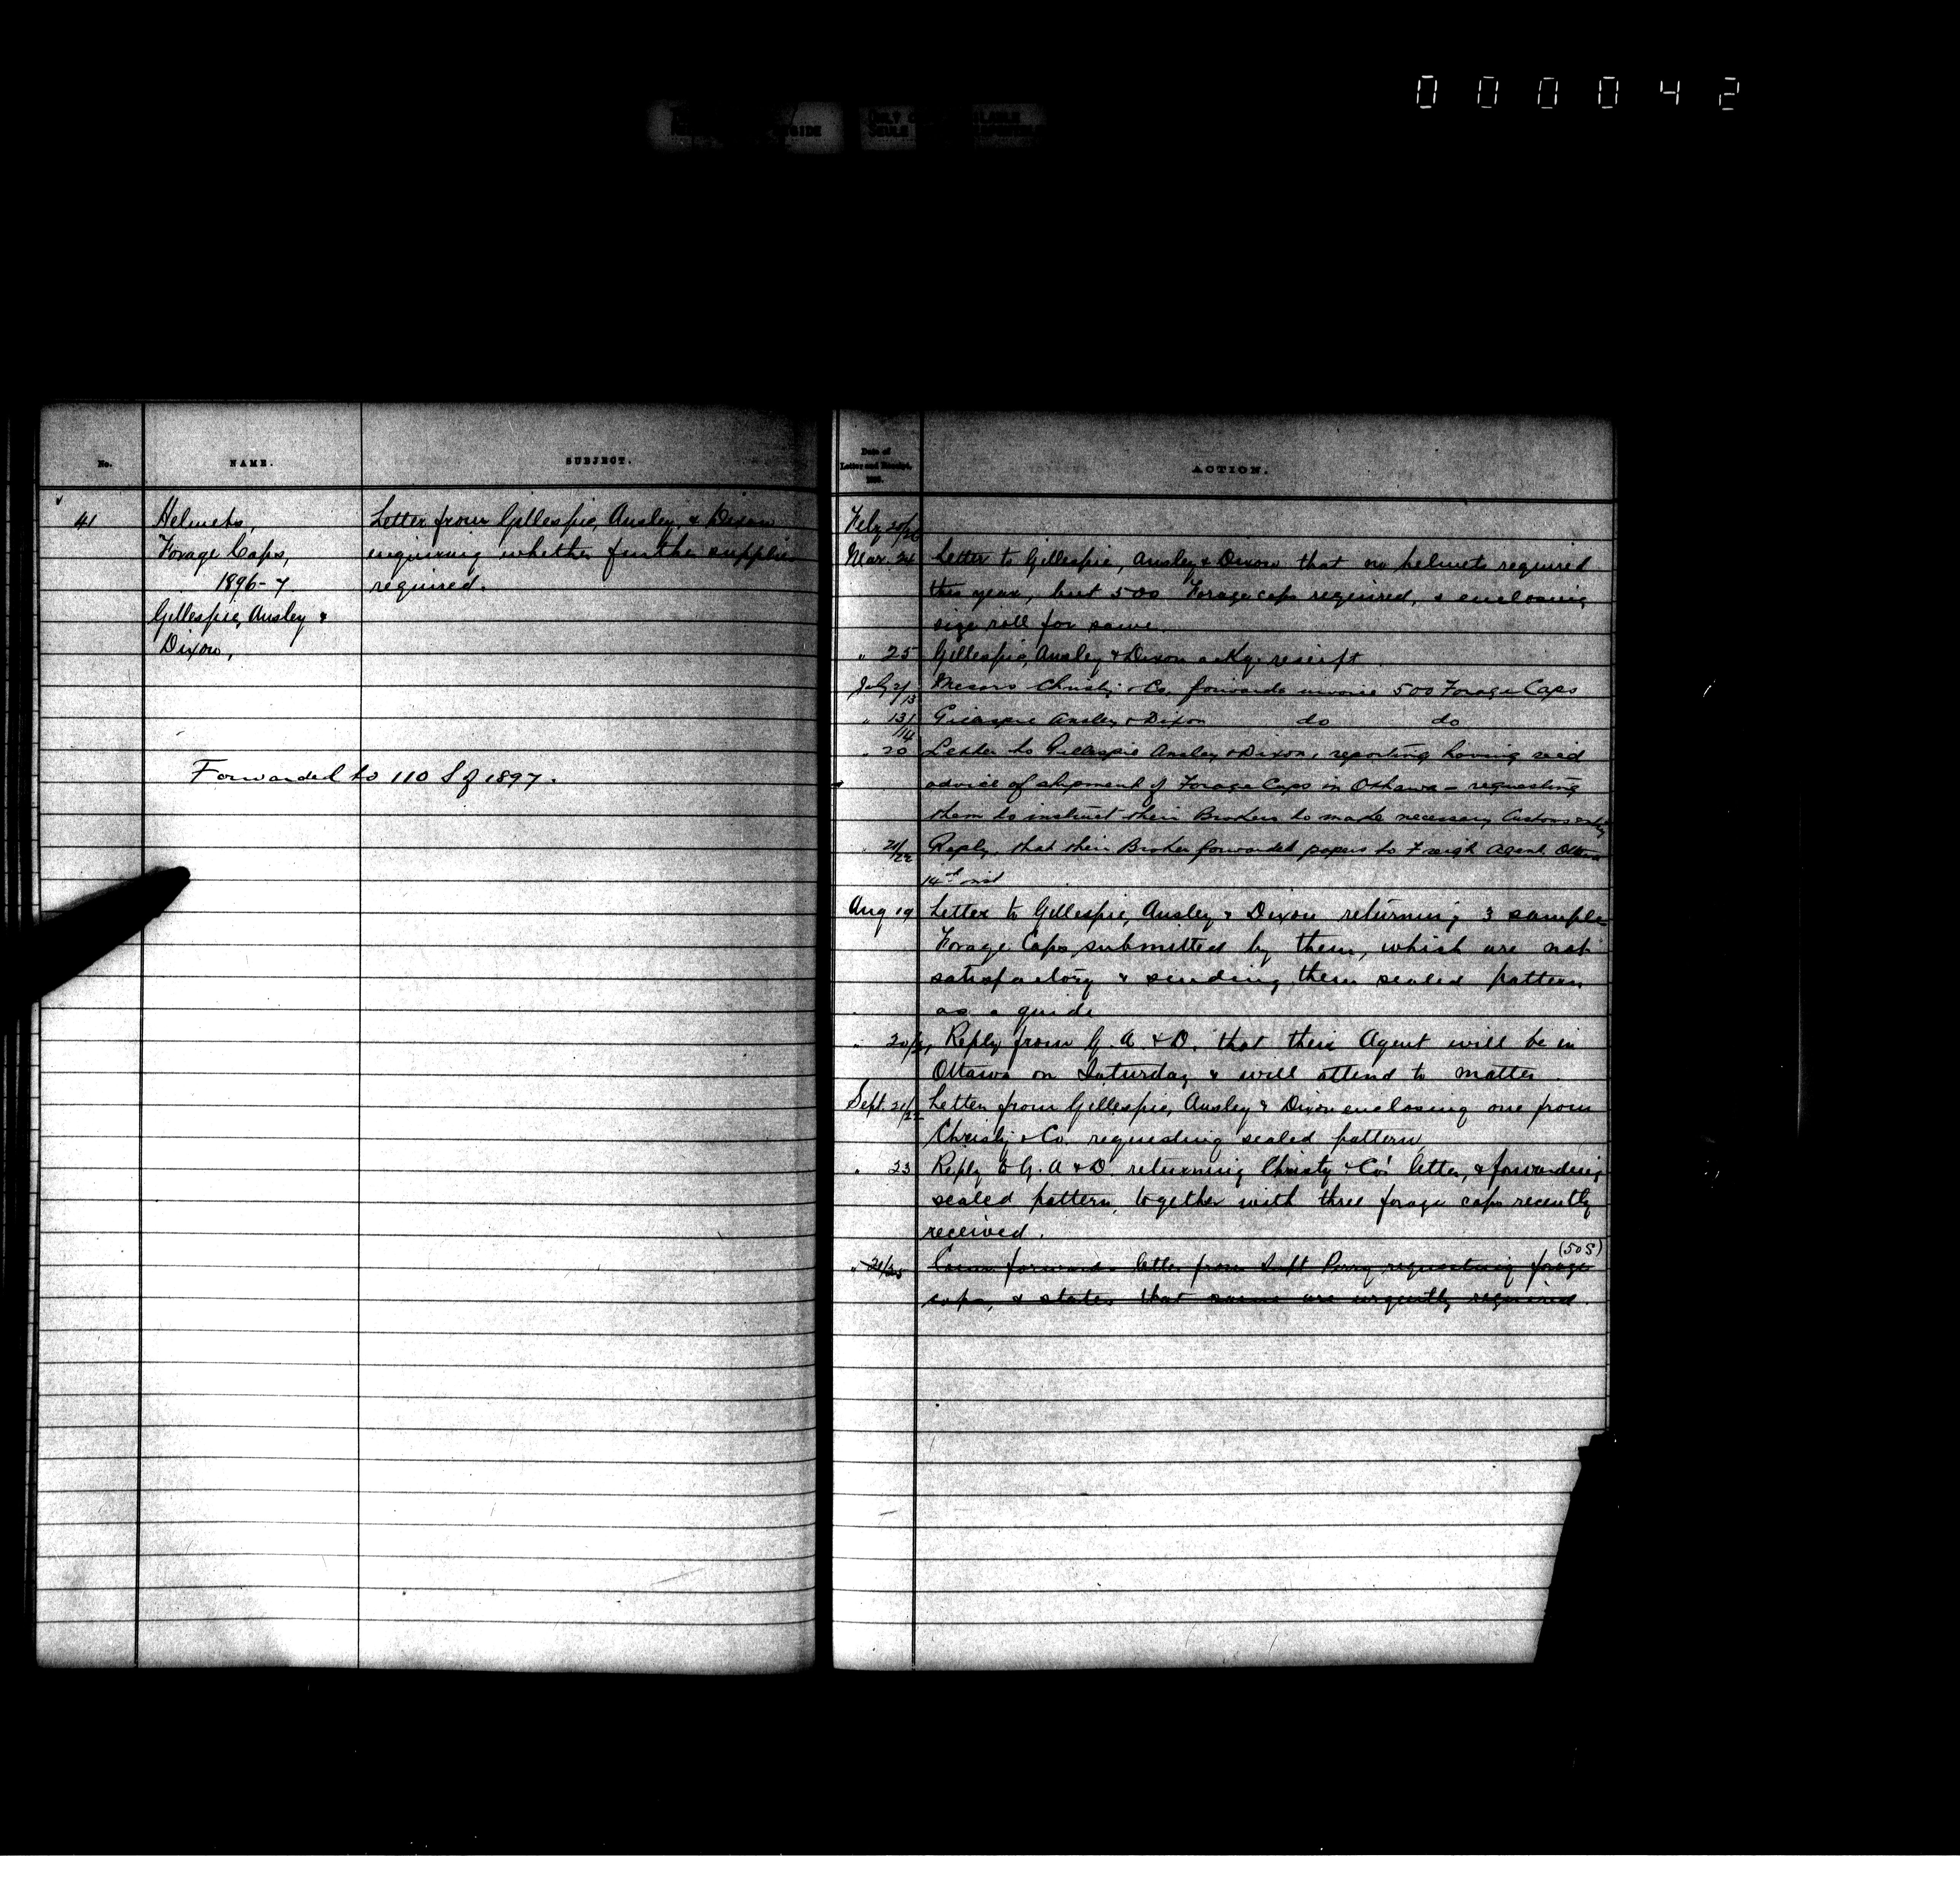 000042
No.
NAME.
SUBJECT.
41
Helmets,
Forage Caps,
1896-7
Gillespie, Ansley &
Dixon,
Letter from Gillespie, Ansley, & Dixon
enquiring whether further supplies
required.
Forwarded to 110 S of 1897.
Date of
Letter and Receipt.
ACTION.
Feby 20/26
Mar. 24 Letter to Gillespie, Ansley & Dixon that no helmets required
this year, but 500 Forage caps required, & enclosing
size roll for same.
" 25 Gillespie, Ansley & Dixon ackg. receipt.
July 2/13 Messrs Christy & Co. forwards invoice 500 Forage Caps
" 13/14 Gillespie Ansley & Dixon do do
" 20 Letter to Gillespie Ansley & Dixon, reporting having recd
advice of shipment of Forage Caps in Ottawa - requesting
them to instruct their Brokers to make necessary Customs entry
" 21/22 Reply that their Broker forwarded papers to Freigh Agent, Ottawa
14th inst
Aug 19 Letter to Gillespie, Ansley & Dixon returning 3 sample
Forage Caps submitted by them, which are not
satisfactory & sending them sealed pattern
as a guide
" 20/ Reply from G. A. & D. that their Agent will be in
Ottawa on Saturday & will attend to matter.
Sept. 21/22 Letter from Gillespie, Ansley & Dixon enclosing one from
Christy & Co. requesting sealed pattern
" 23 Reply to G. A & D returning Christy & Co's letter, & forwarding
sealed pattern, together with three forage caps recently
received.
(505)
" 21/25 Comr forwards letter from Supt Perry requesting forage
caps, & states that same are urgently required.